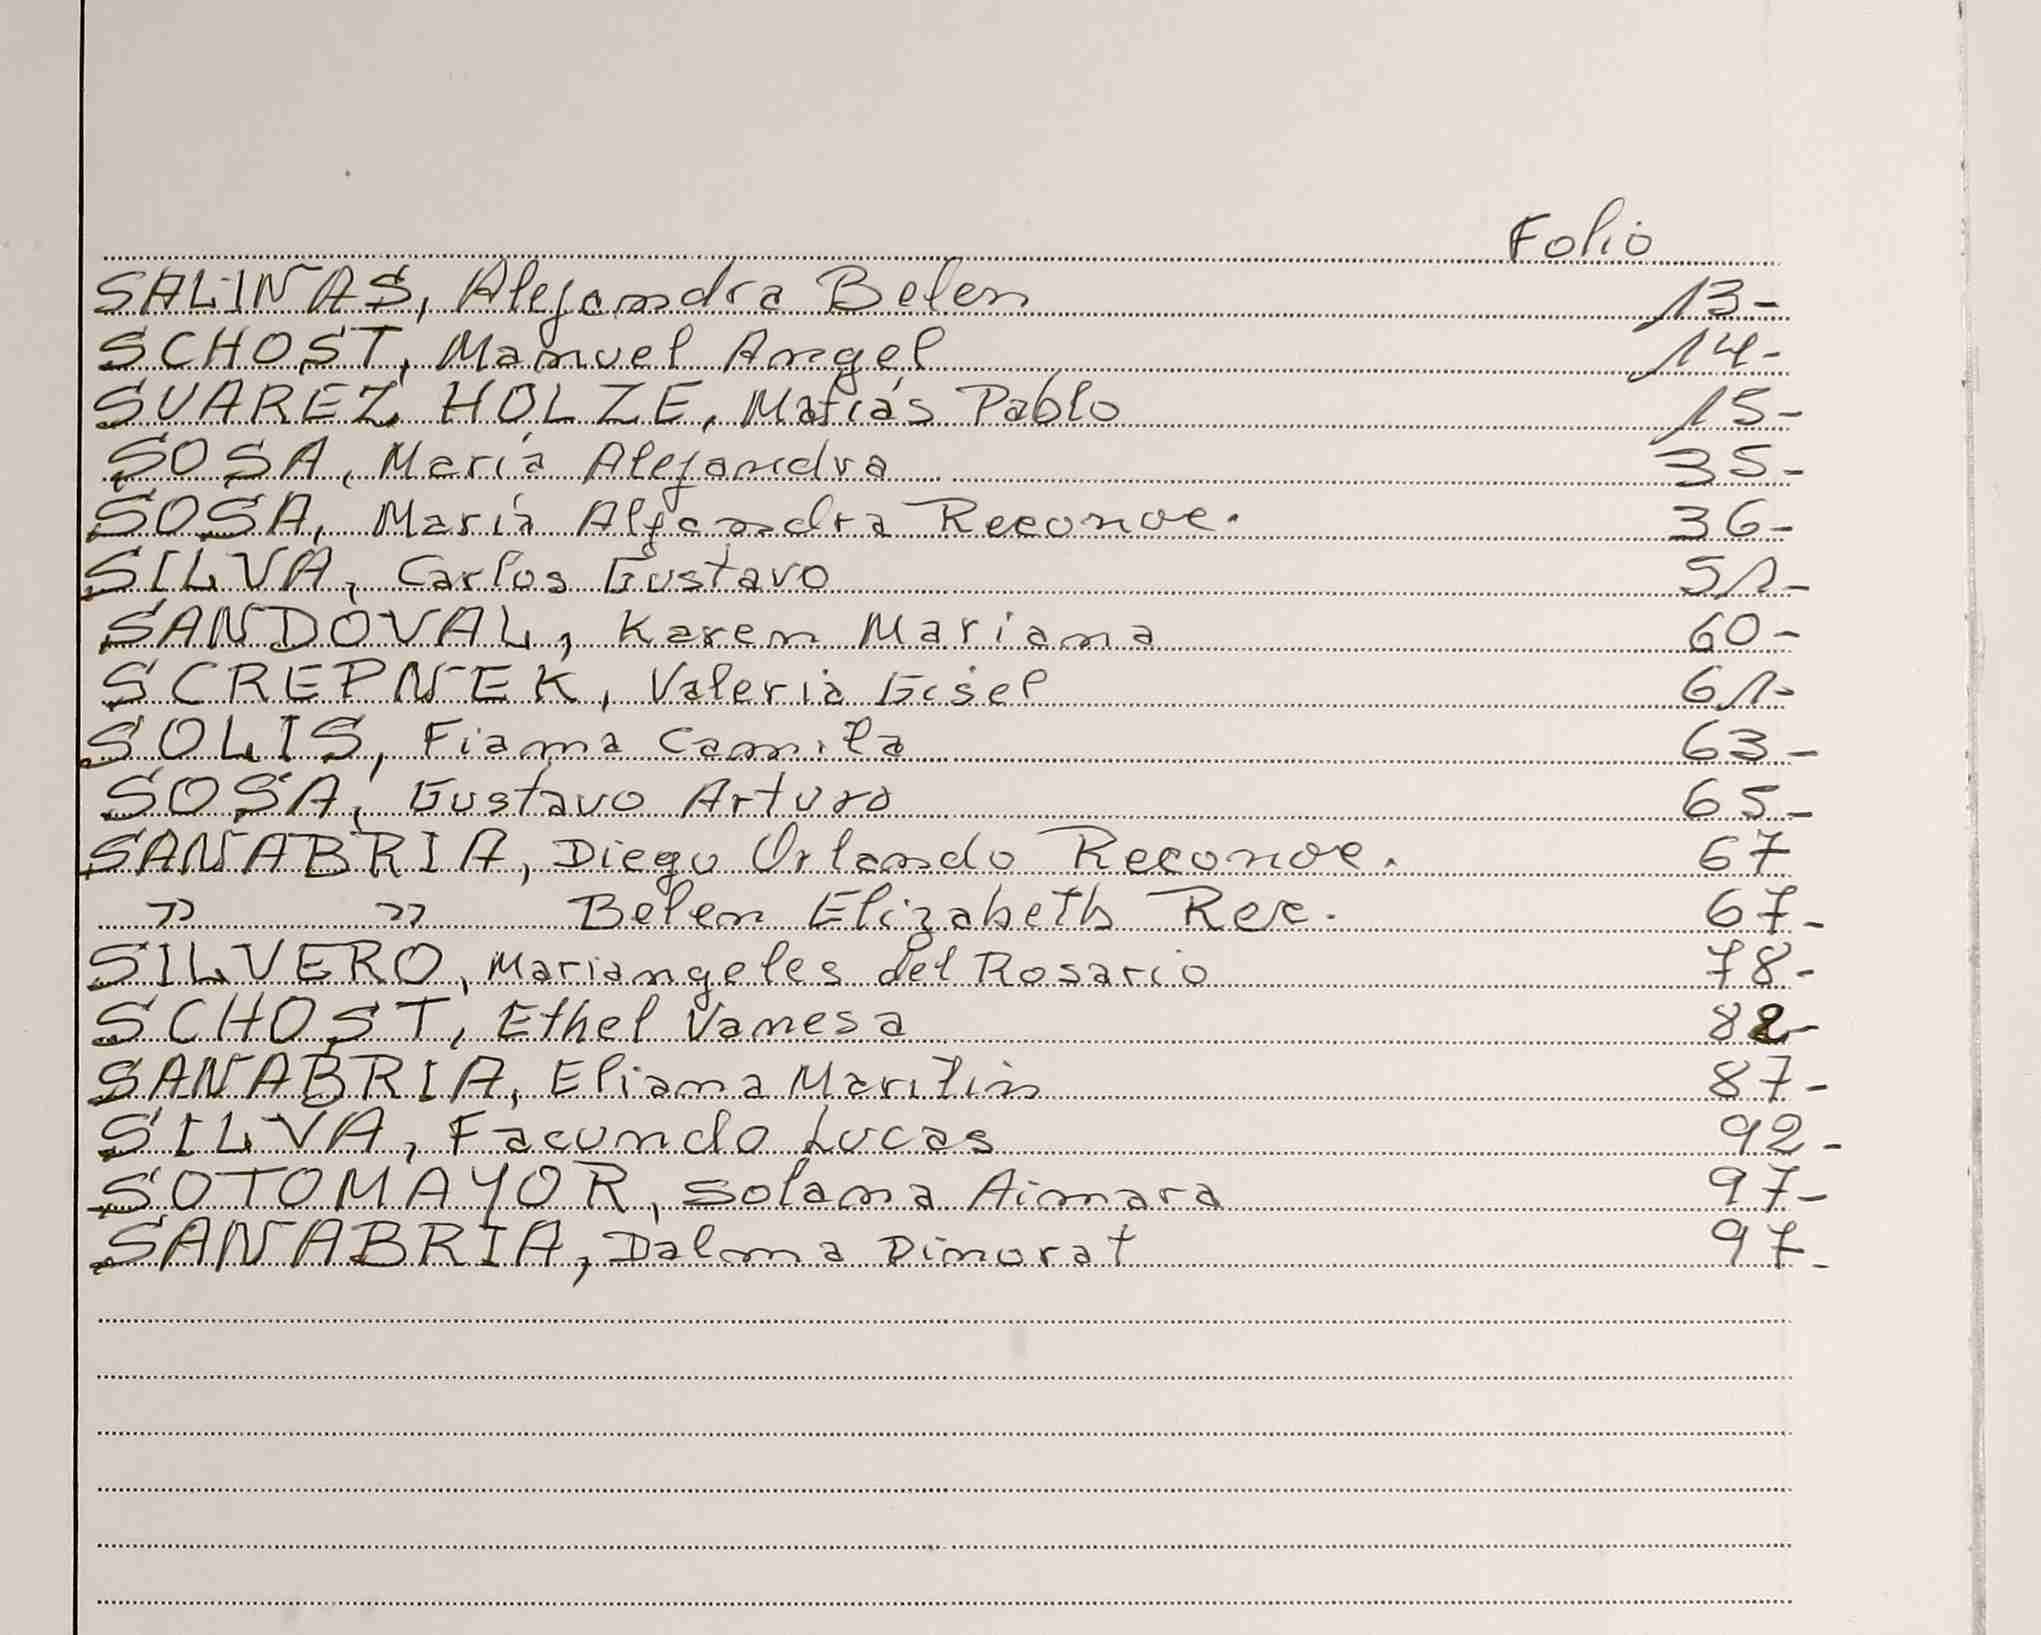 Folio
SALINAS, Alejandra Belen 13-
SCHOST, Manuel Angel 14-
SUAREZ HOLZE, Matías Pablo 15-
SOSA, María Alejandra 35-
SOSA, María Alejandra Reconoc. 36-
SILVA, Carlos Gustavo 51-
SANDOVAL, Karen Mariana 60-
SCREPNEK, Valeria Gisel 61-
SOLIS, Fiama Camila 63-
SOSA, Gustavo Arturo 65-
SANABRIA, Diego Orlando Reconoc. 67
" " Belen Elizabeth Rec. 67-
SILVERO, Mariangeles del Rosario 78-
SCHOST, Ethel Vanesa 82-
SANABRIA, Eliana 87-
SILVA, Facundo Lucas 92-
SOTOMAYOR, Solana Aimara 97-
SANABRIA, Dalma Dinorat 97-